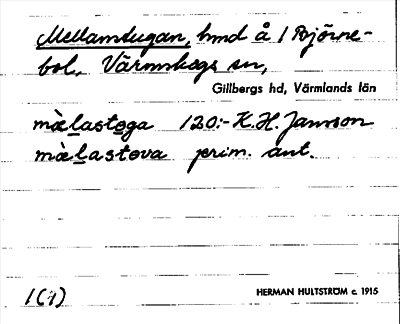 Mellamstugan, hmd å 1 Björne-
bol, Värmskogs sn,
Gillbergs hd, Värmlands län
mæ̀lastoga 120:- K.H. Jansson
mæ̀lastova prim. ant.
1(9) HERMAN HULTSTRÖM c. 1915